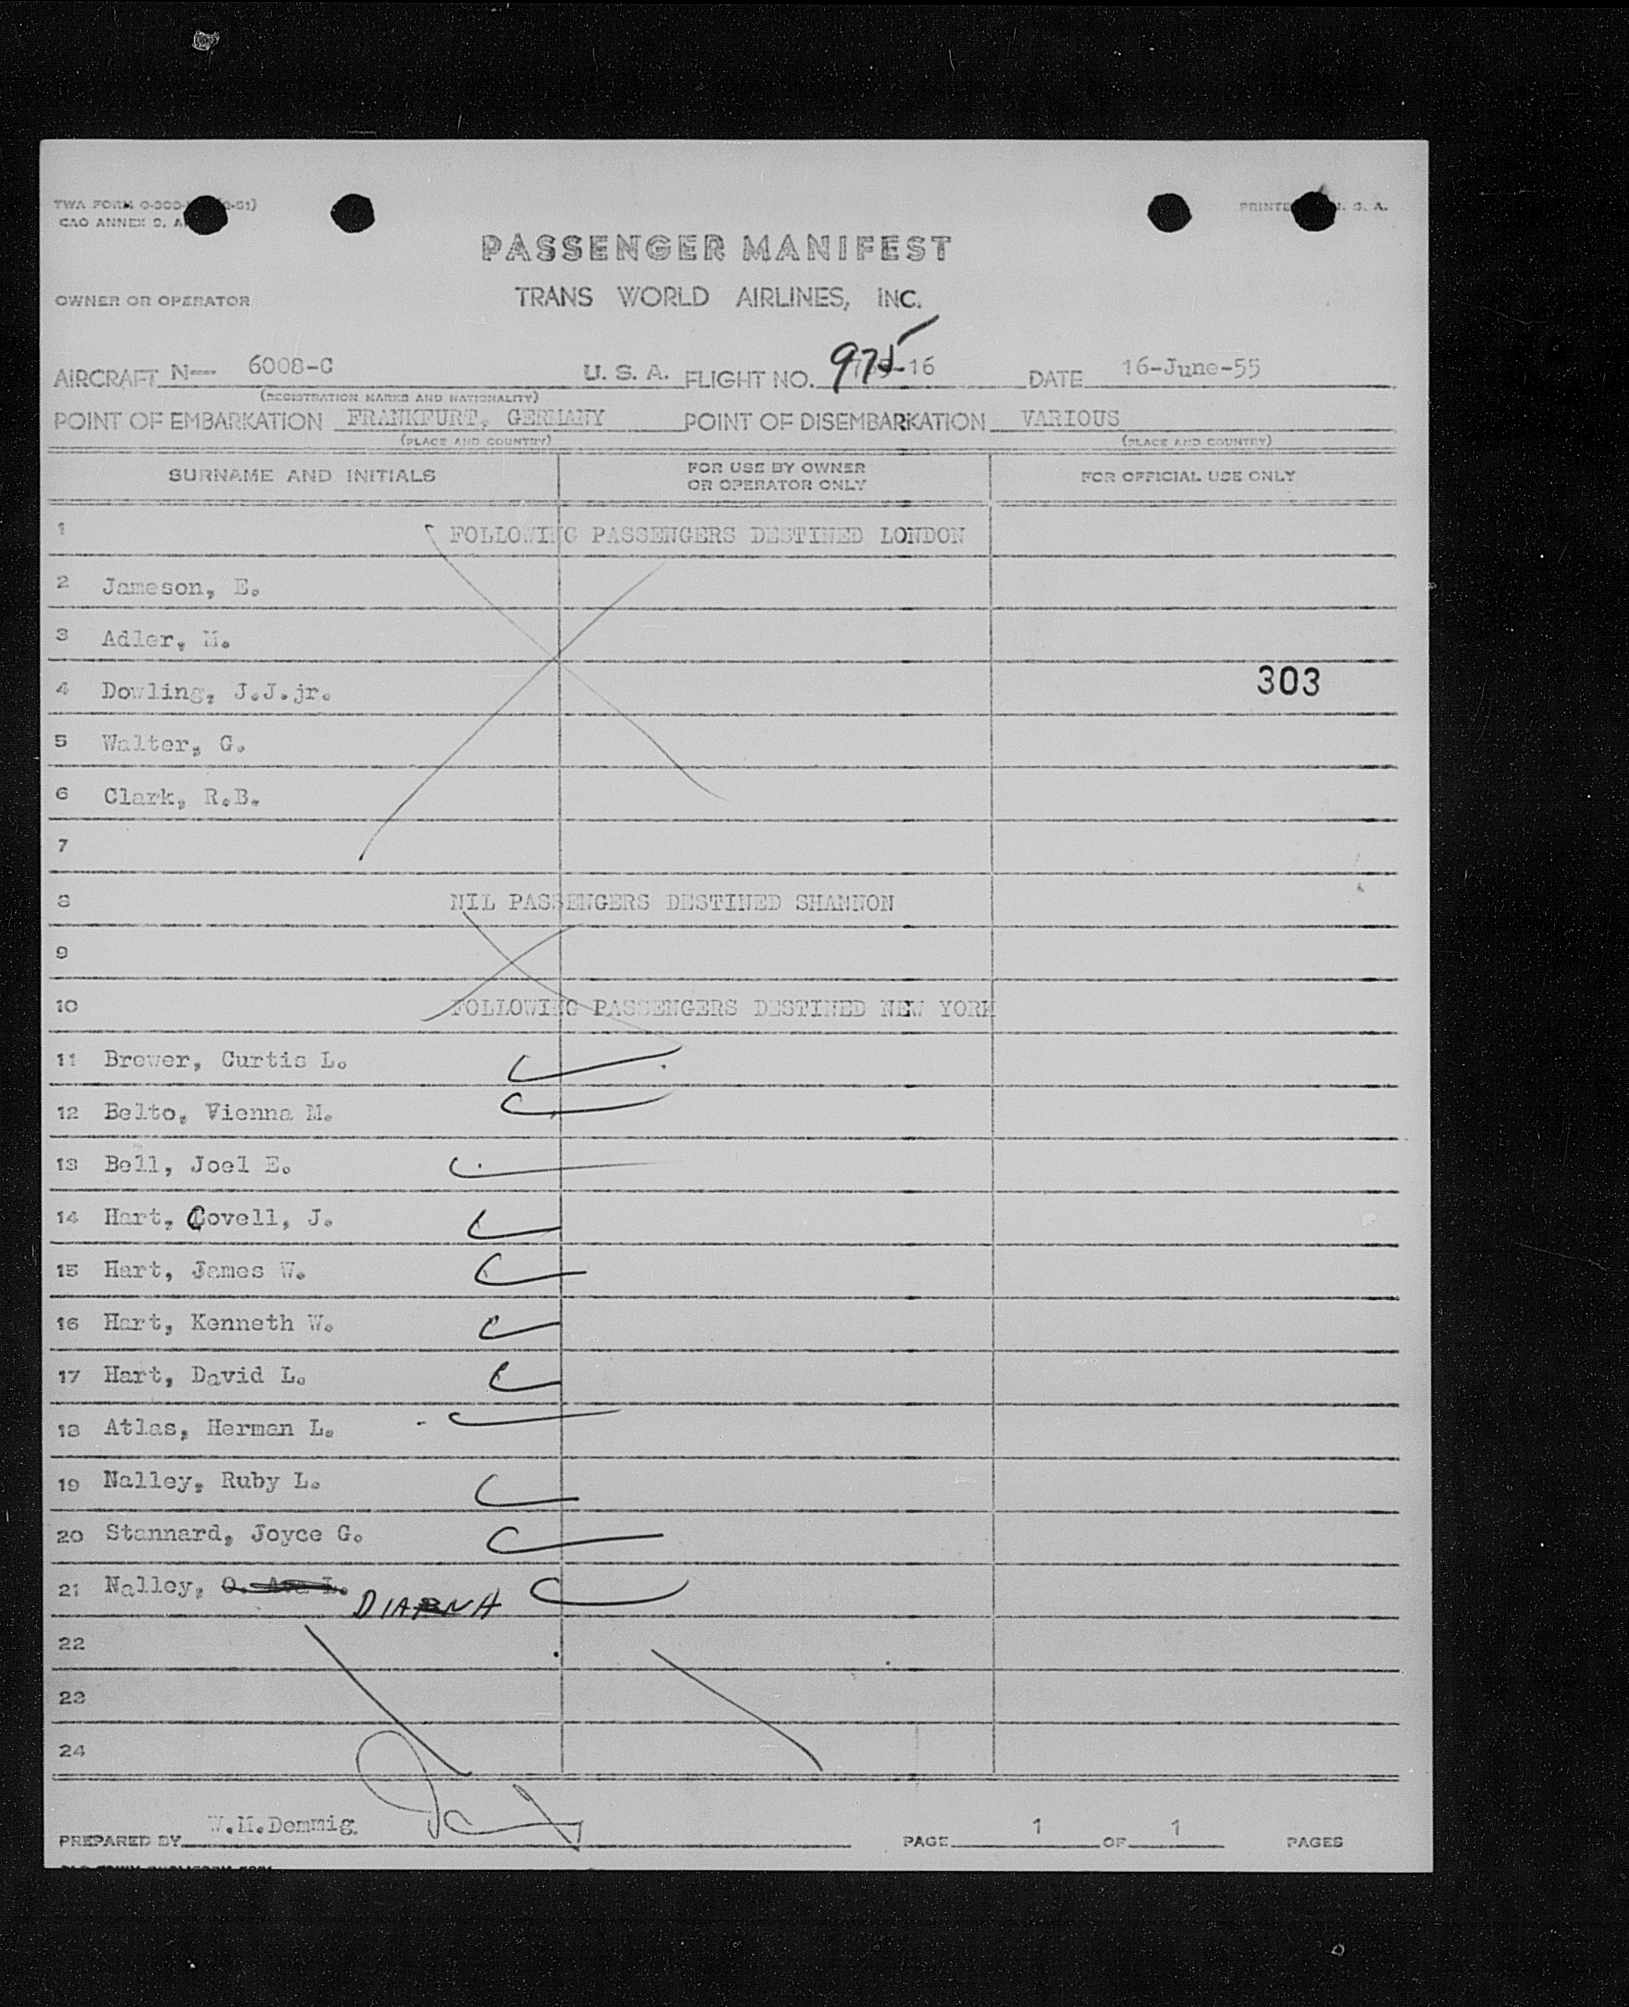 TWA FORM 0-300-
CAO ANNEX 9, A
PRINTE U. S. A.
PASSENGER MANIFEST
OWNER OR OPERATOR TRANS WORLD AIRLINES, INC.
AIRCRAFT N-- 6008-C U. S. A. FLIGHT NO. 975-16 DATE 16-June-55
(REGISTRATION MARKS AND NATIONALITY)
POINT OF EMBARKATION FRANKFURT, GERMANY POINT OF DISEMBARKATION VARIOUS
(PLACE AND COUNTRY) (PLACE AND COUNTRY)
SURNAME AND INITIALS FOR USE BY OWNER OR OPERATOR ONLY FOR OFFICIAL USE ONLY
1 FOLLOWING PASSENGERS DESTINED LONDON
2 Jameson, E.
3 Adler, M.
303
4 Dowling, J.J.jr.
5 Walter, G.
6 Clark, R.B.
7
8 NIL PASSENGERS DESTINED SHANNON
9
10 FOLLOWING PASSENGERS DESTINED NEW YORK
11 Brewer, Curtis L.
12 Belto, Vienna M.
13 Bell, Joel E.
14 Hart, Covell, J.
15 Hart, James W.
16 Hart, Kenneth W.
17 Hart, David L.
18 Atlas, Herman L.
19 Nalley, Ruby L.
20 Stannard, Joyce G.
21 Nalley, O. Ava L. DIANA
22
23
24
PREPARED BY W.M.Demmig PAGE 1 OF 1 PAGES